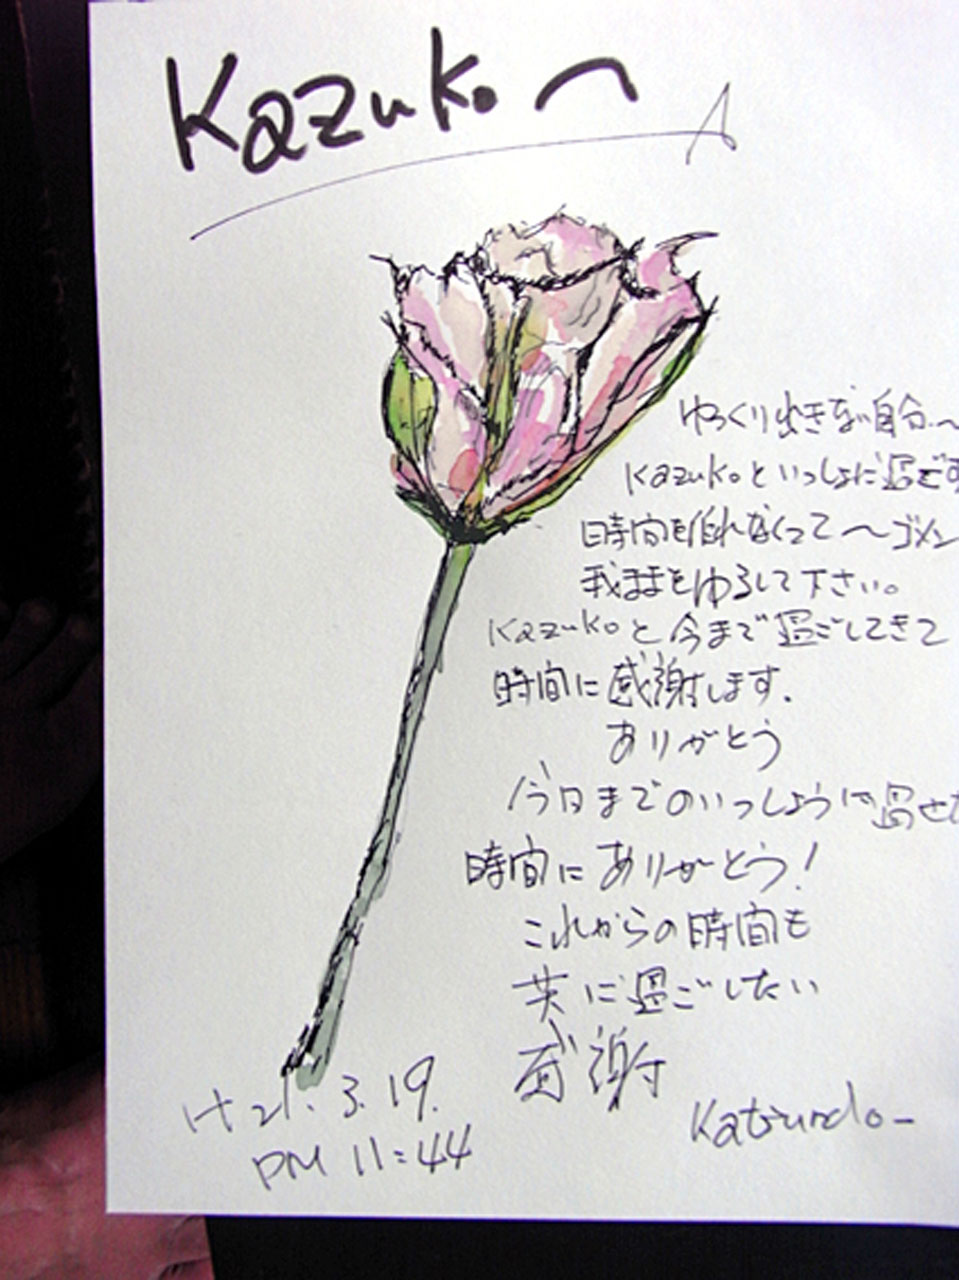 Kazukoへ
ゆっくり出きない自分〜
Kazukoといっしょに過ごす
時間を作れなくって〜ゴメン
我ままをゆるして下さい。
Kazukoと今まで過ごしてきて
時間に感謝します.
ありがとう
今日までのいっしょうに過せた
時間にありがとう!
これからの時間も
共に過ごしたい
感謝
H21.3.19.
PM 11:44